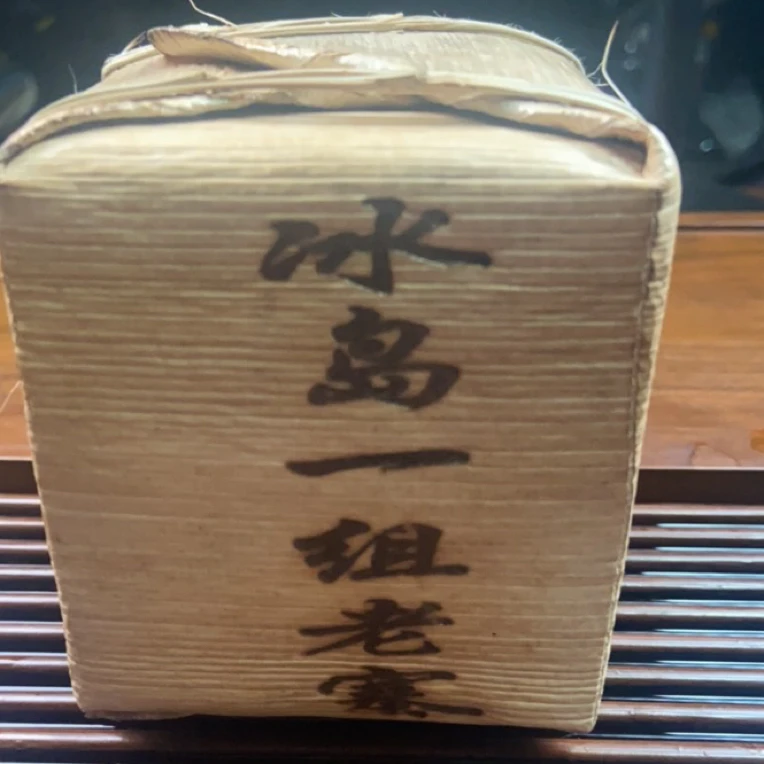 冰岛一组老寨